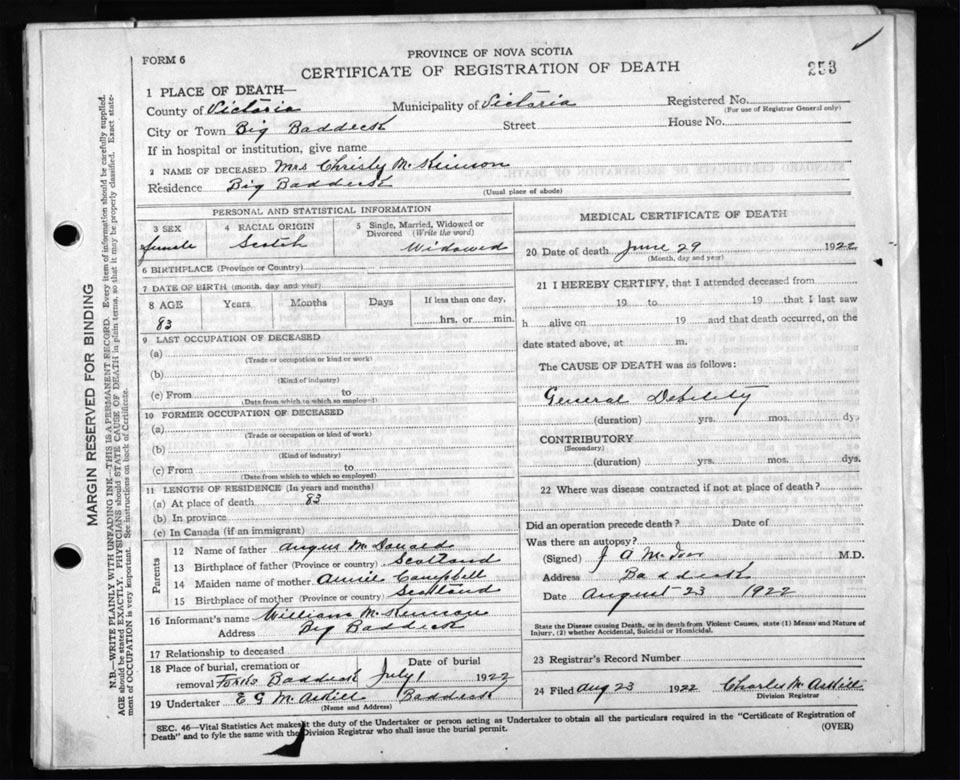 PROVINCE OF NOVA SCOTIA
FORM 6
CERTIFICATE OF REGISTRATION OF DEATH
253
1 PLACE OF DEATH—
County of Victoria Municipality of Victoria Registered No.
(For use of Registrar General only)
City or Town Big Baddeck Street House No.
If in hospital or institution, give name
2 NAME OF DECEASED Mrs Christy McKinnon
Residence Big Baddeck
(Usual place of abode)
PERSONAL AND STATISTICAL INFORMATION
3 SEX female
4 RACIAL ORIGIN Scotch
5 Single, Married, Widowed or Divorced (Write the word) Widowed
6 BIRTHPLACE (Province or Country)
7 DATE OF BIRTH (month, day and year)
8 AGE Years Months Days If less than one day,
83 hrs. or min.
9 LAST OCCUPATION OF DECEASED
(a)
(Trade or occupation or kind or work)
(b)
(Kind of industry)
(c) From to
(Date from which to which so employed)
10 FORMER OCCUPATION OF DECEASED
(a)
(Trade or occupation or kind of work)
(b)
(Kind of industry)
(c) From to
(Date from which to which so employed)
11 LENGTH OF RESIDENCE (In years and months)
(a) At place of death 83
(b) In province
(c) In Canada (if an immigrant)
Parents
12 Name of father Angus McDonald
13 Birthplace of father (Province or country) Scotland
14 Maiden name of mother Annie Campbell
15 Birthplace of mother (Province or country) Scotland
16 Informant's name William McKinnon
Address Big Baddeck
17 Relationship to deceased
18 Place of burial, cremation or Date of burial
removal Forks Baddeck July 1 1922
19 Undertaker E G McAskill Baddeck
(Name and Address)
MEDICAL CERTIFICATE OF DEATH
20 Date of death June 29 1922
(Month, day and year)
21 I HEREBY CERTIFY, that I attended deceased from
19 to 19 that I last saw
h alive on 19 and that death occurred, on the
date stated above, at m.
The CAUSE OF DEATH was as follows:
General Debility
(duration) yrs. mos. dys
CONTRIBUTORY
(Secondary)
(duration) yrs. mos. dys.
22 Where was disease contracted if not at place of death?
Did an operation precede death? Date of
Was there an autopsy?
(Signed) J A M.D.
Address Baddeck
Date August 23 1922
State the Disease causing Death, or in death from Violent Causes, state (1) Means and Nature of
Injury, (2) whether Accidental, Suicidal or Homicidal.
23 Registrar's Record Number
24 Filed Aug 23 1922 Charles McAskill
Division Registrar
SEC. 46—Vital Statistics Act makes it the duty of the Undertaker or person acting as Undertaker to obtain all the particulars required in the "Certificate of Registration of
Death" and to fyle the same with the Division Registrar who shall issue the burial permit. (OVER)
MARGIN RESERVED FOR BINDING
N.B.—WRITE PLAINLY WITH UNFADING INK—THIS IS A PERMANENT RECORD. Every item of information should be carefully supplied.
AGE should be stated EXACTLY. PHYSICIANS should STATE CAUSE OF DEATH in plain terms, so that it may be properly classified. Exact state-
ment of OCCUPATION is very important. See instructions on back of Certificate.